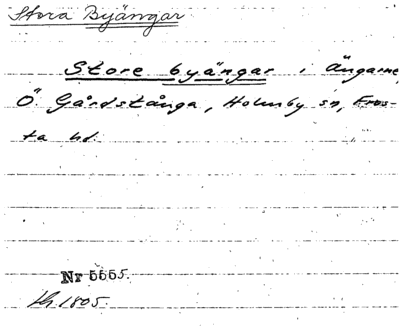 Stora Byängar
Store byängar i Ängarne,
Ö. Gårdstånga, Holmby sn, Fros-
ta hd.
Nr 5555.
Lh. 1805.